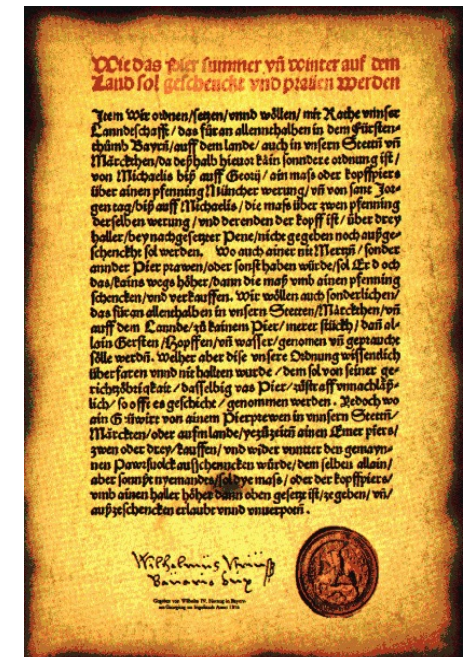 Wie das Pier summer vñ winter auf dem
Land sol geschenckt vnd prauen werden
Item Wir ordnen/setzen/vnnd wöllen/ mit Rathe vnnser
Lanndtschafft/ das für an allennthalben in dem Fürsten-
thůmb Bayrñ/auff dem lande/ auch in vnsern Stettñ vñ
Märckthen/da deßhalb hieuor kain sonndere ordnung ist/
von Michaelis biß auff Georij/ ain mass oder kopffpiers
über ainen pfenning Müncher werung/ vñ von sant Jor-
gen tag/biß auff Michaelis/ die mass über zwen pfenning
derselben werung/ vnd derenden der kopff ist/ über drey
haller/bey nachgesetzter Pene/nicht gegeben noch außge-
schenckht sol werden. Wo auch ainer nit Mertzñ/ sonder
annder Pier prawen/oder sonst haben würde/sol Er d och
das/kains wegs höher/dann die maß vmb ainen pfenning
schencken/vnd verkauffen. Wir wöllen auch sonderlichen/
das für an allenthalben in vnsern Stetten/Märckthen/vñ
auff dem Lannde/zů kainem Pier/ merer stückh/ dañ al-
lain Gersten/Hopffen/vñ wasser/genomen vñ gepraucht
sölle werdñ. Welher aber dise vnsere Ordnung wissendlich
überfaren vnnd nit hallten wurde/ dem sol von seiner ge-
richtzöbrigkait/dasselbig vas Pier/zůstraff vnnachläß-
lich/so offt es geschicht/ genommen werden. Yedoch wo
ain Gäüwirt von ainem Pierprewen in vnnsern Stettñ/
Märckten/oder aufm lande/yezůzeitñ ainen Emer piers/
zwen oder drey/kauffen/vnd wider vnnter den gemayn-
nen Pawrsuolck ausschenncken würde/dem selben allain/
aber sonnst nyemandes/sol dye mass/oder der kopffpiers/
vmb ainen haller höher dann oben gesetzt ist/ze geben/vñ/
außzeschencken erlaubt vnnd vnuerpotñ.
Gegeben von Wilhelm IV. Herzog in Bayern
am Georgitag zu Ingolstadt Anno 1516